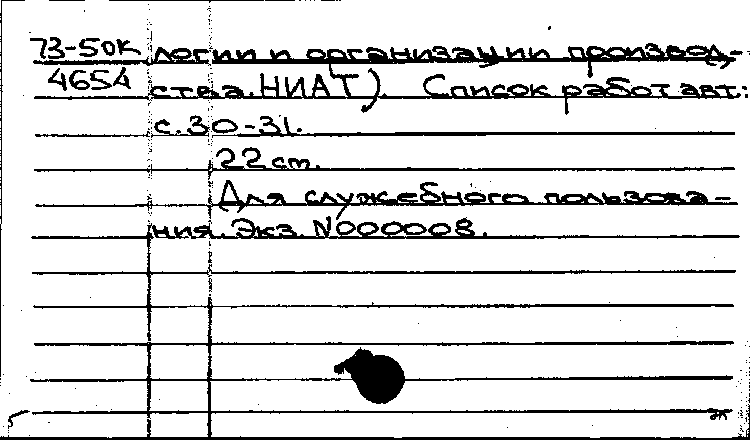 73-50к логии и организации производ-
4654 ства. НИАТ). Список работ авт.:
с. 30-31.
22 cm.
Для служебного пользова-
ния. Экз. №000008.
эк